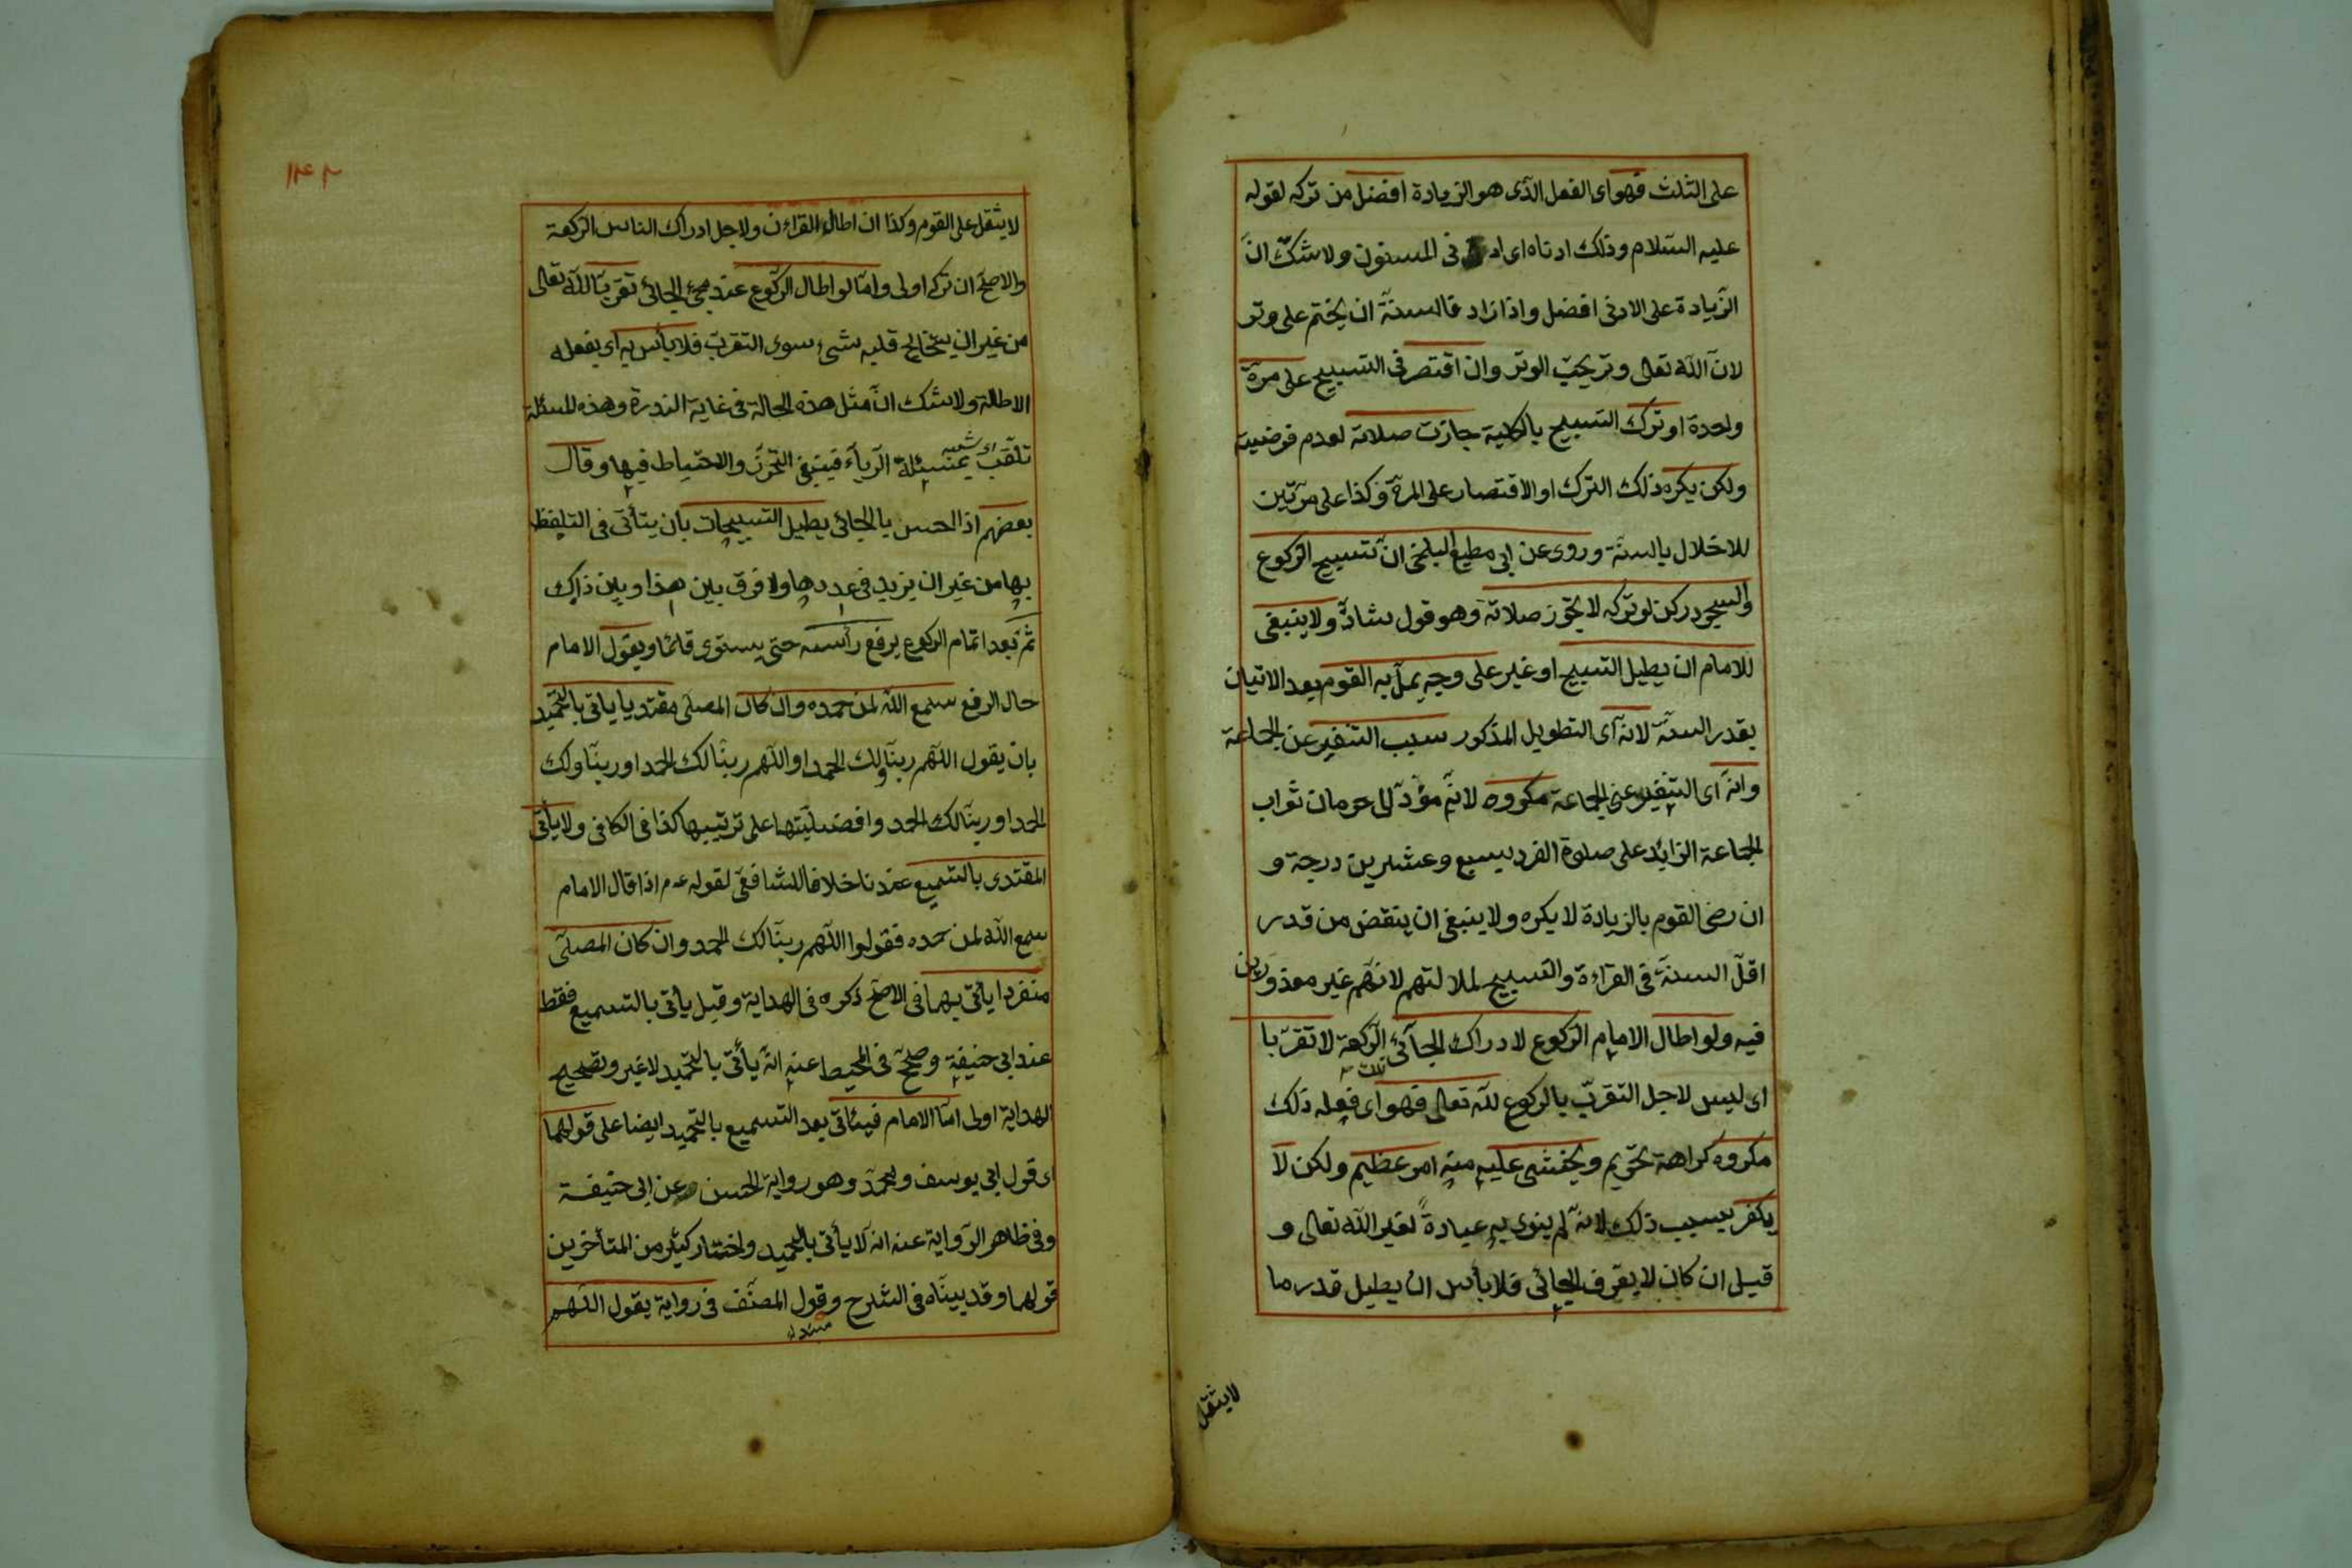 على الثلث فهو اى الفعل الذى هو الزيادة افضل من تركه لقوله
عليه السّلام وذلك ادناه اى فى المسنون ولا شكّ انّ
الزّيادة على الادنى افضل واذا زاد فالسنّة ان يختم على وتر
لانّ اللّه تعالى وتر يحبّ الوتر وان اقتصر فى التسبيح على مرّة
واحدة او ترك التسبيح بالكلية جازت صلاته لعدم فرضيته
ولكن يكره ذلك الترك او الاقتصار على المرّة وكذا على مرّتين
للاخلال بالسنّة وروى عن ابى مطيع البلخى انّ تسبيح الركوع
والسجود ركن لو تركه لا يجوز صلاته وهو قول شاذّ ولا ينبغى
للامام ان يطيل التسبيح او غير على وجه يملّ به القوم بعد الاتيان
بقدر السنّة لانه اى التطويل المذكور سبب التنفير عن الجماعة
وانه اى التنفير عن الجماعة مكروه لانّه مؤدّ الى حرمان ثواب
الجماعة الزايد على صلوة الفرد بسبع وعشرين درجة و
ان رضى القوم بالزيادة لا يكره ولا ينبغى ان ينقض من قدر
اقلّ السنّة فى القراءة والتسبيح لملالتهم لانّهم غير معذورين
فيه ولو اطال الامام الركوع لادراك الجآئى الرّكعة لا تقرّبا
اى ليس لاجل التقرّب بالركوع للّه تعالى فهو اى فعله ذلك
مكروه كراهة تحريم ويخشى عليه منه امر عظيم ولكن لا
يكفر بسبب ذلك لانّه لم ينوى به عبادةً لغير اللّه تعالى و
قيل ان كان لا يعرف الجائى فلا بأس ان يطيل قدر ما
لا يثقل
١٤٢
لا يثقل على القوم وكذا ان اطال القراءن ولاجل ادراك الناس الركعة
والاصحّ ان تركه اولى وامّا لو اطال الركوع عند مجئ الجائى تقرّبا للّه تعالى
من غير ان يتخالج قلبه شىء سوى التقرّب فلا بأس به اى بفعله
الاطالة ولا شك انّ مثل هذه الحالة فى غاية الندرة وهذه المسئلة
تلقّب بمسئلة الرّياء فينبغى التحرّز والاحتياط فيها وقال
بعضهم اذا احس بالجائى يطيل التسبيحات بان يتأنى فى التلفظ
بها من غير ان يزيد فى عددها ولا فرق بين هذا وبين ذاك
ثمّ بعد اتمام الركوع يرفع رأسه حتى يستوى قائما ويقول الامام
حال الرفع سمع اللّه لمن حمده وان كان المصلّى مقتديا ياتى بالتحميد
بان يقول اللّهم ربنّا ولك الحمد او اللّهم ربنّا لك الحمد او ربنّا ولك
الحمد او ربنّا لك الحمد وافضليّتها على ترتيبها كذا فى الكافى ولا يأتى
المقتدى بالتسميع عندنا خلافا للشافعى لقوله عم اذا قال الامام
سمع اللّه لمن حمده فقولوا اللّهم ربنّا لك الحمد وان كان المصلّى
منفردا يأتى بهما فى الاصحّ ذكره فى الهداية وقيل يأتى بالتسميع فقط
عند ابى حنيفة وصحّح فى المحيط عنه انّه يأتى بالتحميد لا غير وتصحيح
الهداية اولى امّا الامام فيئاتى بعد التسميع بالتحميد ايضا على قولهما
اى قول ابى يوسف ومحمّد وهو رواية الحسن عن ابى حنيفة
وفى ظاهر الرّواية عنه انه لا يأتى بالتحميد واختار كثير من المتأخرين
قولهما وقد بينّاه فى الشرح وقول المصنّف فى رواية يقول اللّهم